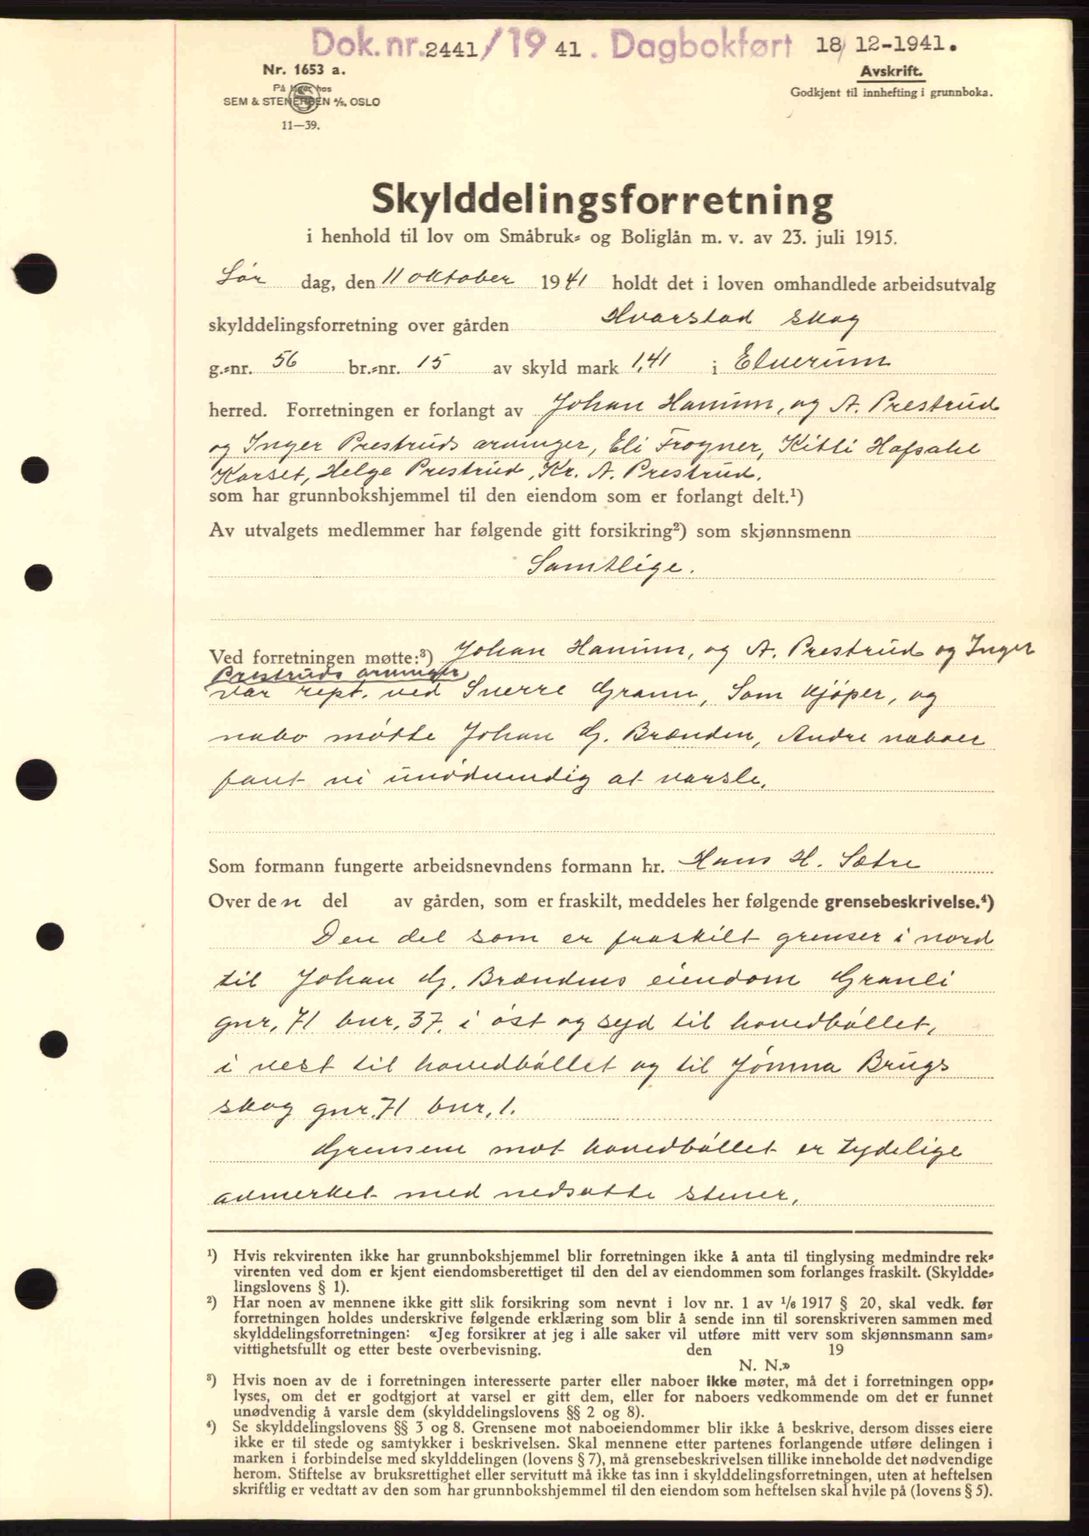 Dok. nr. 2441/1941. Dagbokført 18/12-1941.
Nr. 1653 a.
På lager hos
SEM & STENERSEN A/S, OSLO
11—39.
Avskrift.
Godkjent til innhefting i grunnboka.
Skylddelingsforretning
i henhold til lov om Småbruk- og Boliglån m. v. av 23. juli 1915.
Lør dag, den 11 oktober 1941 holdt det i loven omhandlede arbeidsutvalg
skylddelingsforretning over gården Hvarstad skog
g.-nr. 56 br.-nr. 15 av skyld mark 1,41 i Elverum
herred. Forretningen er forlangt av Johan Hamun, og A. Prestrud
og Inger Prestruds arvinger, Eli Frogner, Kitli Hafsahl
Korset, Helge Prestrud, Kr. A. Prestrud.
som har grunnbokshjemmel til den eiendom som er forlangt delt.¹)
Av utvalgets medlemmer har følgende gitt forsikring²) som skjønnsmenn
Samtlige.
Ved forretningen møtte:³) Johan Hamun, og A. Prestrud og Inger
Prestruds arvinger
var rept. ved Sverre Gramm, Som kjøper, og
nabo møtte Johan G. Brænden, Andre naboer
fant vi unødvendig at varsle.
Som formann fungerte arbeidsnevndens formann hr. Hans H. Sætre
Over den del av gården, som er fraskilt, meddeles her følgende grensebeskrivelse.⁴)
Den del som er fraskilt grenser i nord
til Johan G. Brændens eiendom Granli
gnr. 71 bnr. 37. i øst og syd til hovedbøllet,
i vest til hovedbøllet og til Jømna Brugs
skog gnr. 71 bnr. 1.
Grensene mot hovedbøllet er tydelige
avmerket med nedsatte stener.
¹) Hvis rekvirenten ikke har grunnbokshjemmel blir forretningen ikke å anta til tinglysing medmindre rek-
virenten ved dom er kjent eiendomsberettiget til den del av eiendommen som forlanges fraskilt. (Skyldde-
lingslovens § 1).
²) Har noen av mennene ikke gitt slik forsikring som nevnt i lov nr. 1 av 1/6 1917 § 20, skal vedk. før
forretningen holdes underskrive følgende erklæring som blir å sende inn til sorenskriveren sammen med
skylddelingsforretningen: «Jeg forsikrer at jeg i alle saker vil utføre mitt verv som skjønnsmann sam-
vittighetsfullt og etter beste overbevisning. den 19
N. N.»
³) Hvis noen av de i forretningen interesserte parter eller naboer ikke møter, må det i forretningen opp-
lyses, om det er godtgjort at varsel er gitt dem, eller for naboers vedkommende om det er funnet
unødvendig å varsle dem (skylddelingslovens §§ 2 og 8).
⁴) Se skylddelingslovens §§ 3 og 8. Grensene mot naboeiendommer blir ikke å beskrive, dersom disses eiere
ikke er til stede og samtykker i beskrivelsen. Skal mennene etter partenes forlangende utføre delingen i
marken i forbindelse med skylddelingen (lovens § 7), må grensebeskrivelsen tillike inneholde det nødvendige
herom. Stiftelse av bruksrettighet eller servitutt må ikke tas inn i skylddelingsforretningen, uten at heftelsen
skriftlig er vedtatt av den som har grunnbokshjemmel til den eiendom som heftelsen skal hvile på (lovens § 5).